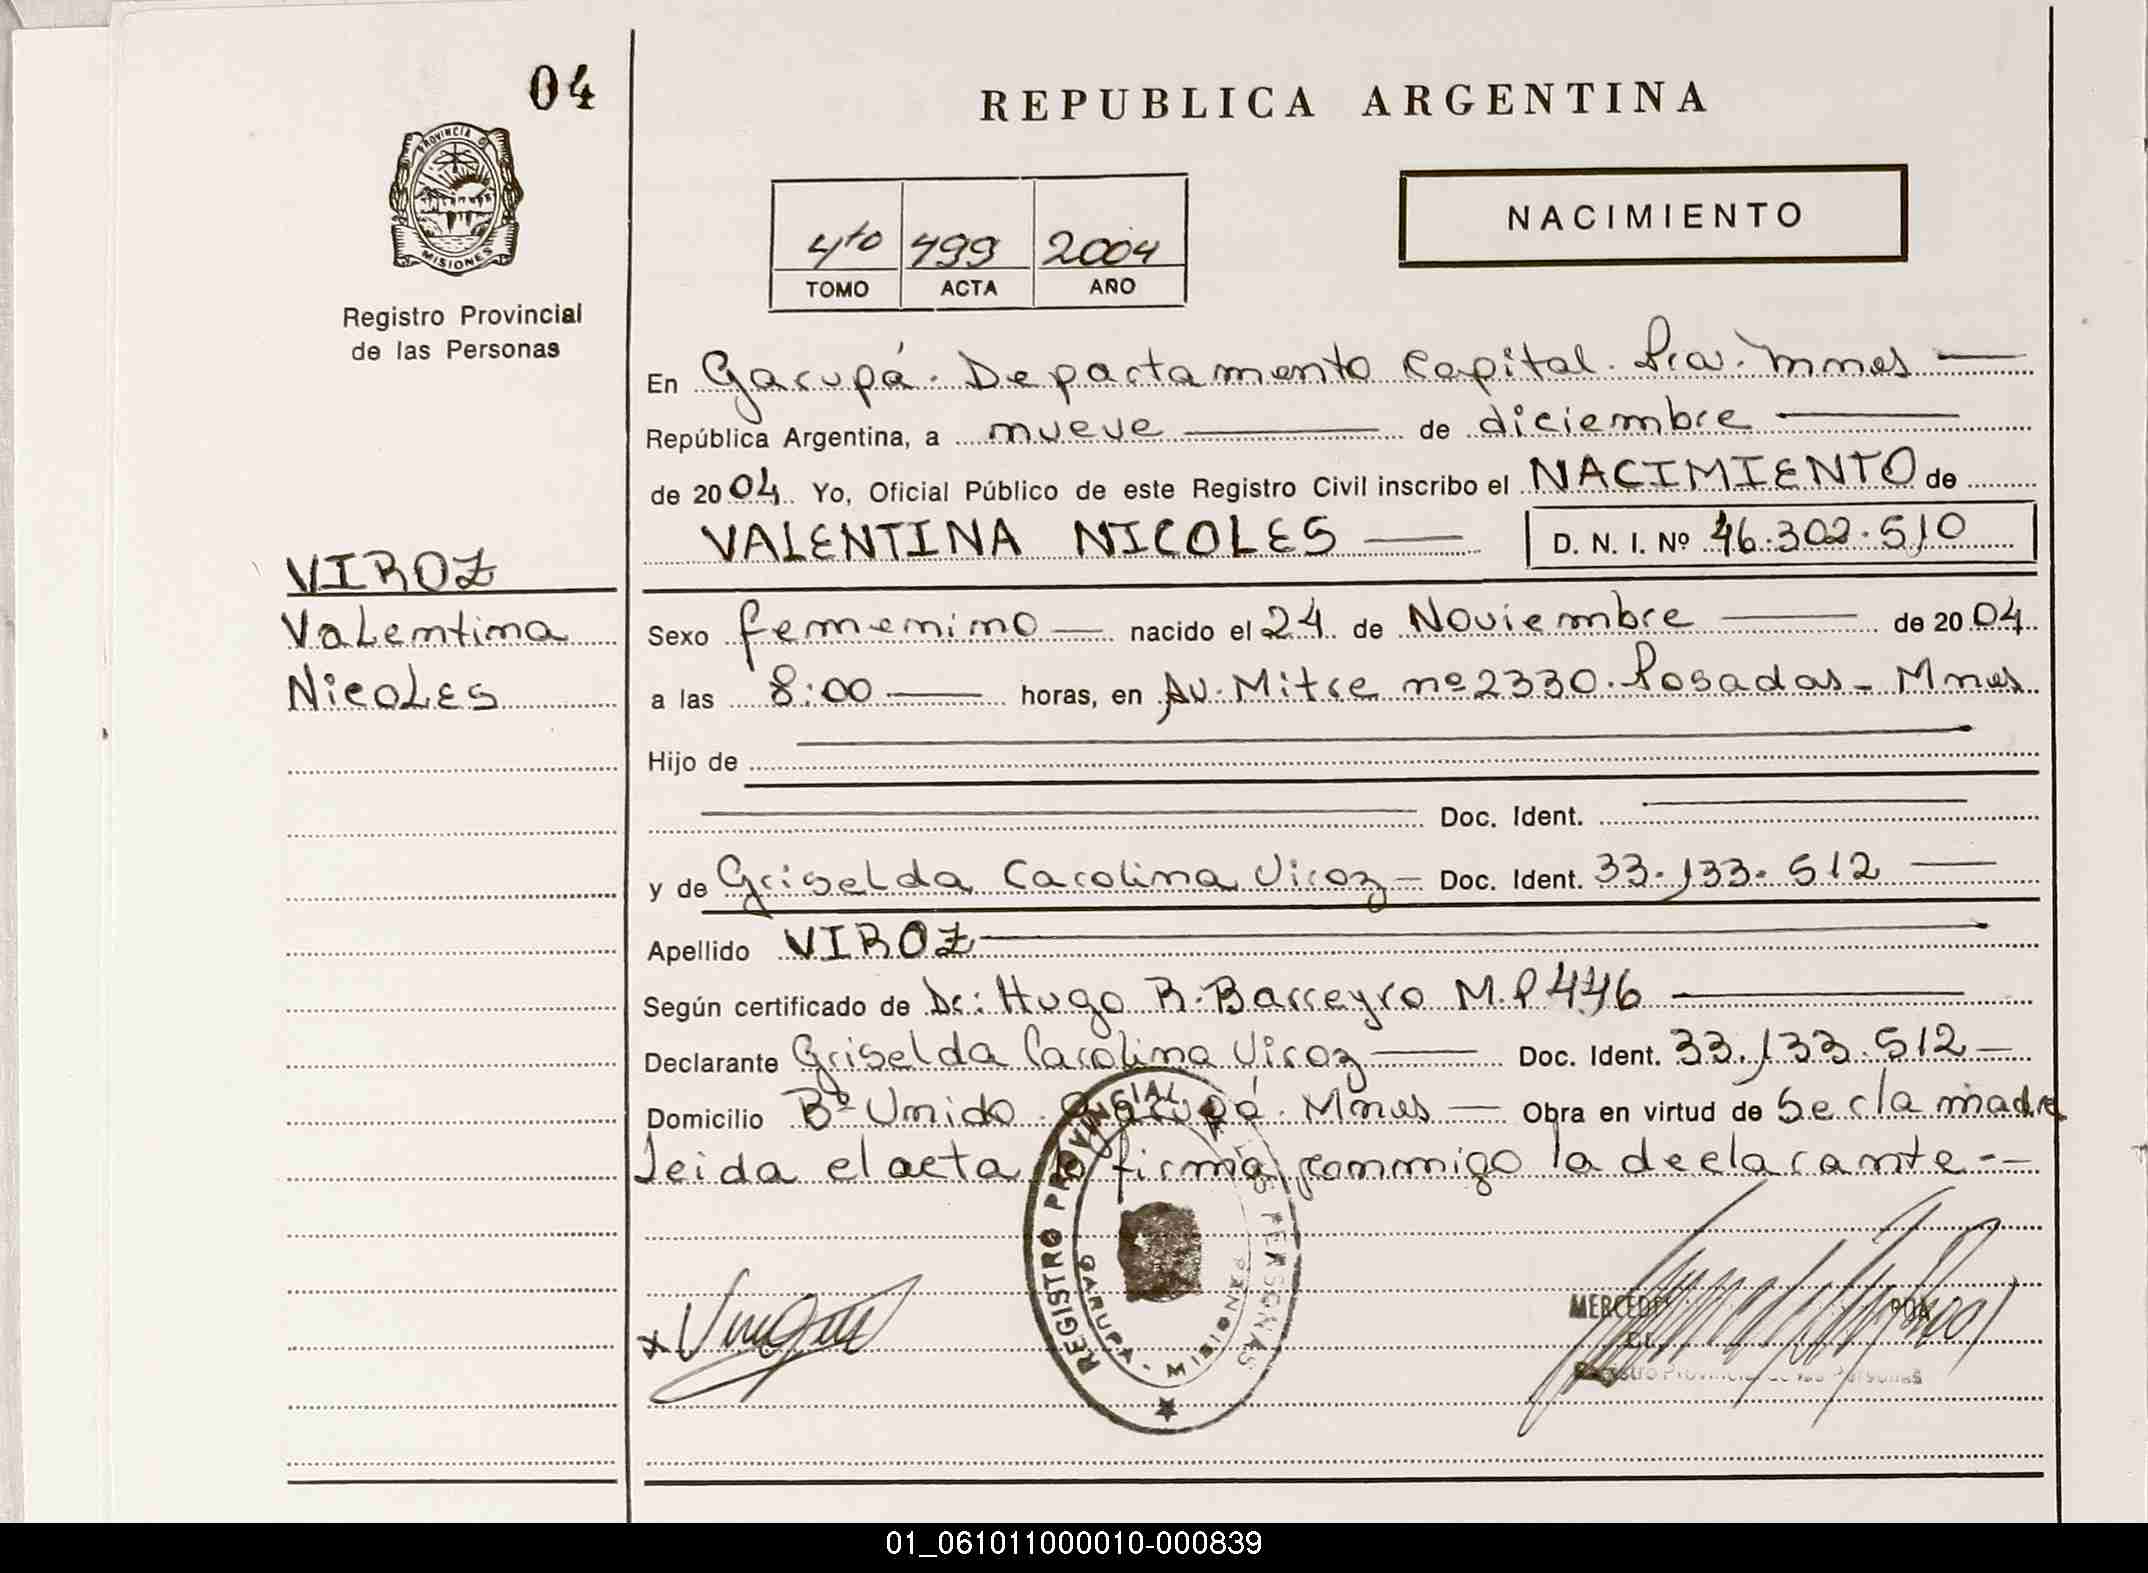 04
REPUBLICA ARGENTINA
PROVINCIA D
MISIONES
Registro Provincial
de las Personas
4to 499 2004
TOMO ACTA AÑO
NACIMIENTO
En Garupá. Departamento Capital. Pcia. Mnes
República Argentina, a nueve de diciembre
de 2004 Yo, Oficial Público de este Registro Civil inscribo el NACIMIENTO de
VALENTINA NICOLES D. N. I. Nº 46.302.510
VIROZ
Valentina
Nicoles
Sexo femenino nacido el 24 de Noviembre de 2004
a las 8:00 horas, en Av. Mitre nº 2330. Posadas - Mnes
Hijo de
Doc. Ident.
y de Griselda Carolina Viroz Doc. Ident. 33.133.512
Apellido VIROZ
Según certificado de Dr: Hugo R. Barreyro M.P 446
Declarante Griselda Carolina Viroz Doc. Ident. 33.133.512
Domicilio Bº Unido. Garupá. Mnes Obra en virtud de Ser la madre
Leida el acta la firma conmigo la declarante --
REGISTRO PROVINCIAL DE LAS PERSONAS
GARUPA - MISIONES
MERCEDES
Registro Provincial de las Personas
01_061011000010-000839